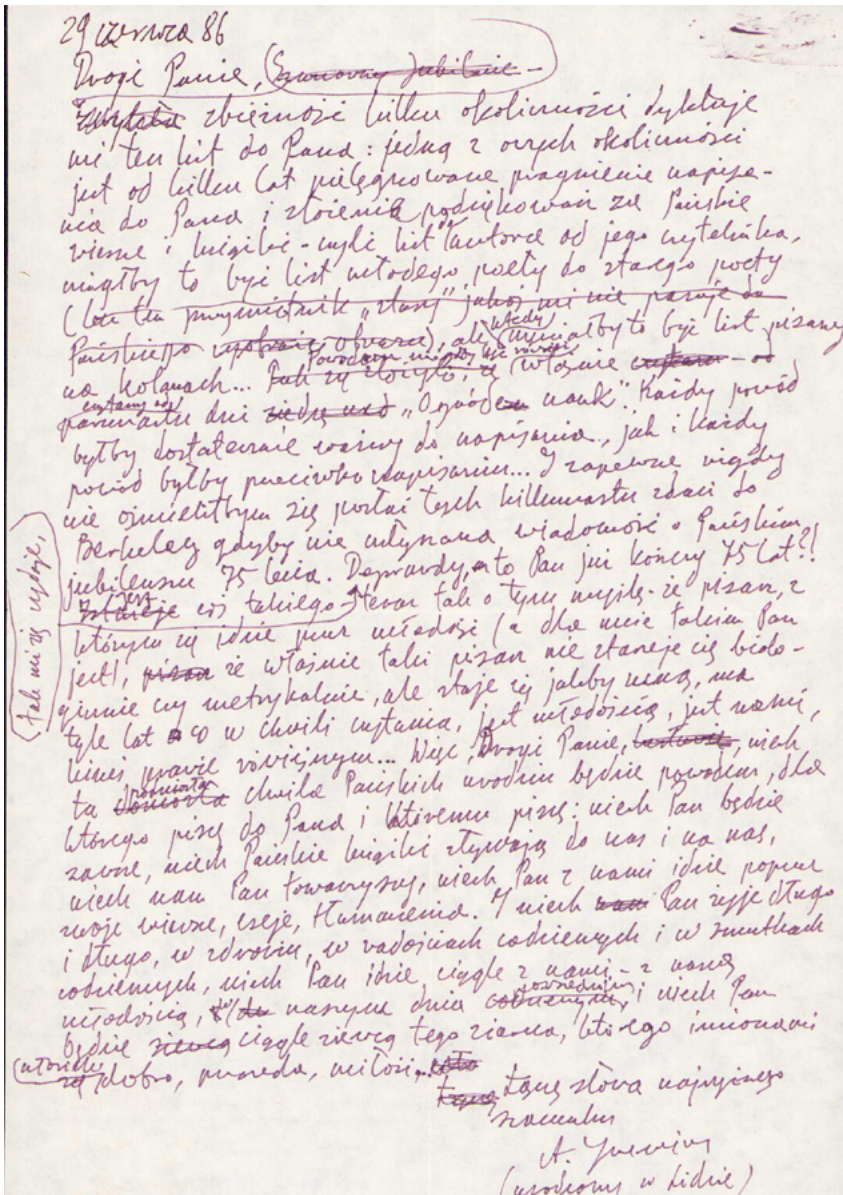 29 czerwca 86
Drogi Panie, (Szanowny Jubilacie -
zbieżność kilku okoliczności dyktuje
mi ten list do Pana: jedną z owych okoliczności
jest od kilku lat pielęgnowane pragnienie napisa-
nia do Pana i złożenia podziękowań za Pańskie
wiersze i książki - czyli list do autora od jego czytelnika,
mógłby to być list młodego poety do starego poety
(lecz ten przymiotnik "stary" jakoś mi nie pasuje do
Pańskiego obrazu), ale wtedy musiałby to być list pisany
na kolanach... Tak się złożyło, że Powodem mógłby być również właśnie czytam - od
paru dni czytany "Ogród nauk". Każdy powód
byłby dostatecznie ważny do napisania, jak i każdy
powód byłby przeciwko napisaniu... I zapewne nigdy
nie ośmieliłbym się posłać tych kilkunastu zdań do
Berkeley gdyby nie usłyszana wiadomość o Pańskim
jubileuszu 75 lecia. Doprawdy, a to Pan już kończy 75 lat?!
jest coś takiego - teraz tak o tym myślę - że pisarz, z
(tak mi się wydaje,
którym się idzie przez młodość (a dla mnie takim Pan
jest), pisarz że właśnie taki pisarz nie starzeje się biolo-
gicznie czy metrykalnie, ale staje się jakby nami, ma
tyle lat co w chwili czytania, jest młodością, jest nami,
kimś prawie rówieśnym... Więc, Drogi Panie, niech
ta podniosła chwila Pańskich urodzin będzie powodem, dla
którego piszę do Pana i któremu piszę: niech Pan będzie
zawsze, niech Pańskie książki spływają do nas i na nas,
niech nam Pan towarzyszy, niech Pan z nami idzie poprzez
swoje wiersze, eseje, tłumaczenia. I niech nam Pan żyje długo
i długo, w zdrowiu, w radościach codziennych i w smutkach
codziennych, niech Pan idzie ciągle z nami - z naszą
młodością, w naszym dniu powszednim, i niech Pan
będzie siewcą ciągle siewcą tego ziarna, którego imionami
są dobro, prawda, miłość...
łączę słowa najwyższego
szacunku
A.
(urodzony w Lidzie)